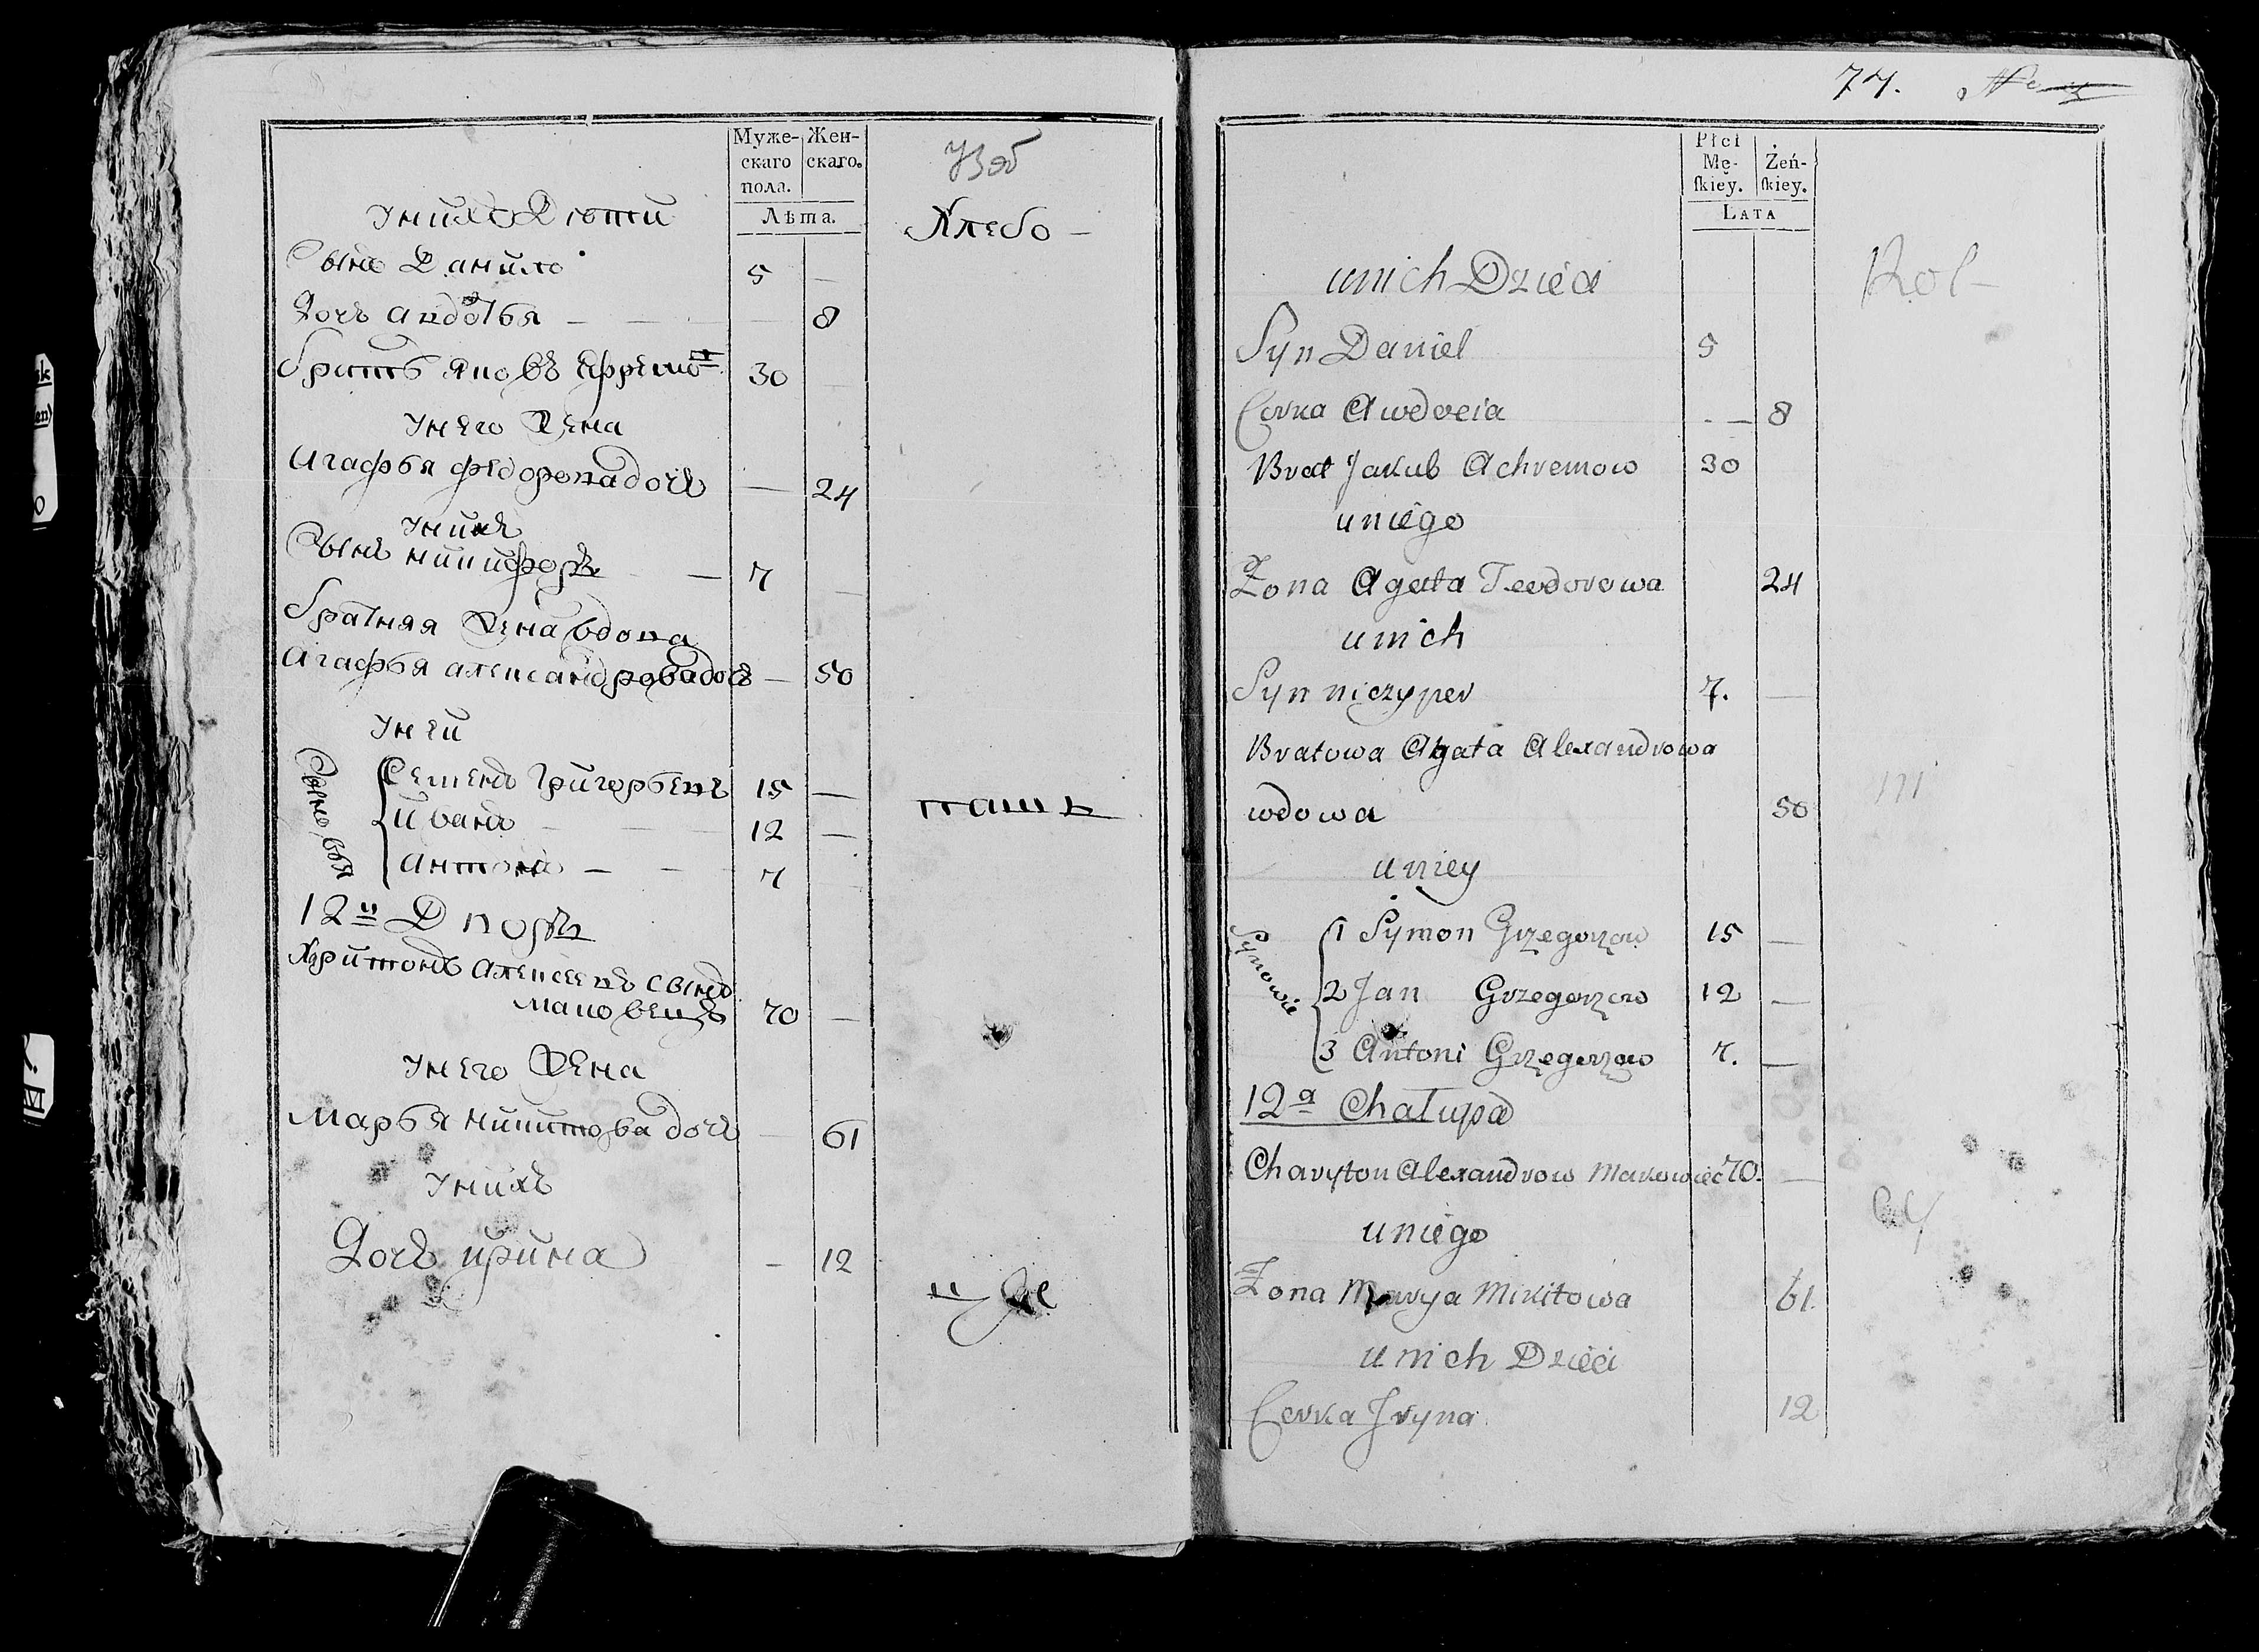 Муже-
скаго
пола.
Жен-
скаго.
Лѣта.
Хлебо -
унихъ Дѣти
Сынъ Данило 5 —
Дочь авдотья — — 8
братъ яковъ ефремов 30 —
унего Жена
агафья федорова дочь — 24
унихъ
Сынъ никифоръ — 7 —
братняя Жена вдова
агафья александровадочь — 50
уней
Сыновья
Семенъ григорьевъ 15 —
Иванъ — — 12 —
антонъ — — 7
пашъ
12й Дворъ
Харитонъ алексеевъ сынъ
маковецъ 70 —
унего Жена
марья никитова дочь — 61
унихъ
Дочь ирина — 12
77.
Płci
Mę-
ſkiey.
Żeń-
ſkiey.
LATA
Rol-
unich Dzieci
Syn Daniel 5
Corka Awdoeia - — 8
Brat Jakub Achremow 30
uniego
Żona Agata Teodorowa 24
unich
Syn niczyper 7. —
Bratowa Agata Alexandrowa
wdowa 50
uniey
Synowie
1 Symon Grzegorzow 15 —
2 Jan Grzegorzow 12 —
3 Antoni Grzegorzow 7. —
12a Chałupa
Charyton Alexandrow Makowiec 70. —
uniego
Żona Marya Mikitowa 61.
unich Dzieci
Corka Jryna 12